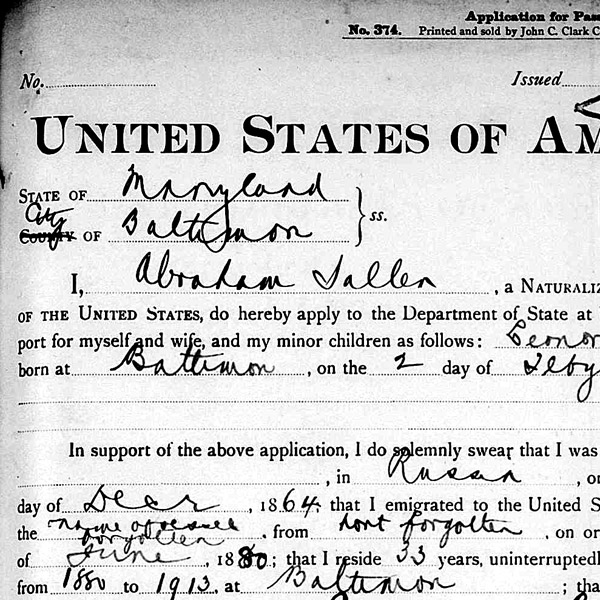 Application for Pas
No. 374. Printed and sold by John C. Clark C
No. Issued
UNITED STATES OF AM
STATE OF Maryland
City
COUNTY OF Baltimore } ss.
I, Abraham Sallen, a NATURALIZ
OF THE UNITED STATES, do hereby apply to the Department of State at
port for myself and wife, and my minor children as follows: Leonor
born at Baltimore, on the 2 day of Feby
In support of the above application, I do solemnly swear that I was
, in Russia, o
day of Decr, 1864; that I emigrated to the United S
the name of vessel forgotten, from port forgotten, on or
of June, 1880; that I reside 33 years, uninterruptedl
from 1880 to 1913, at Baltimore; tha